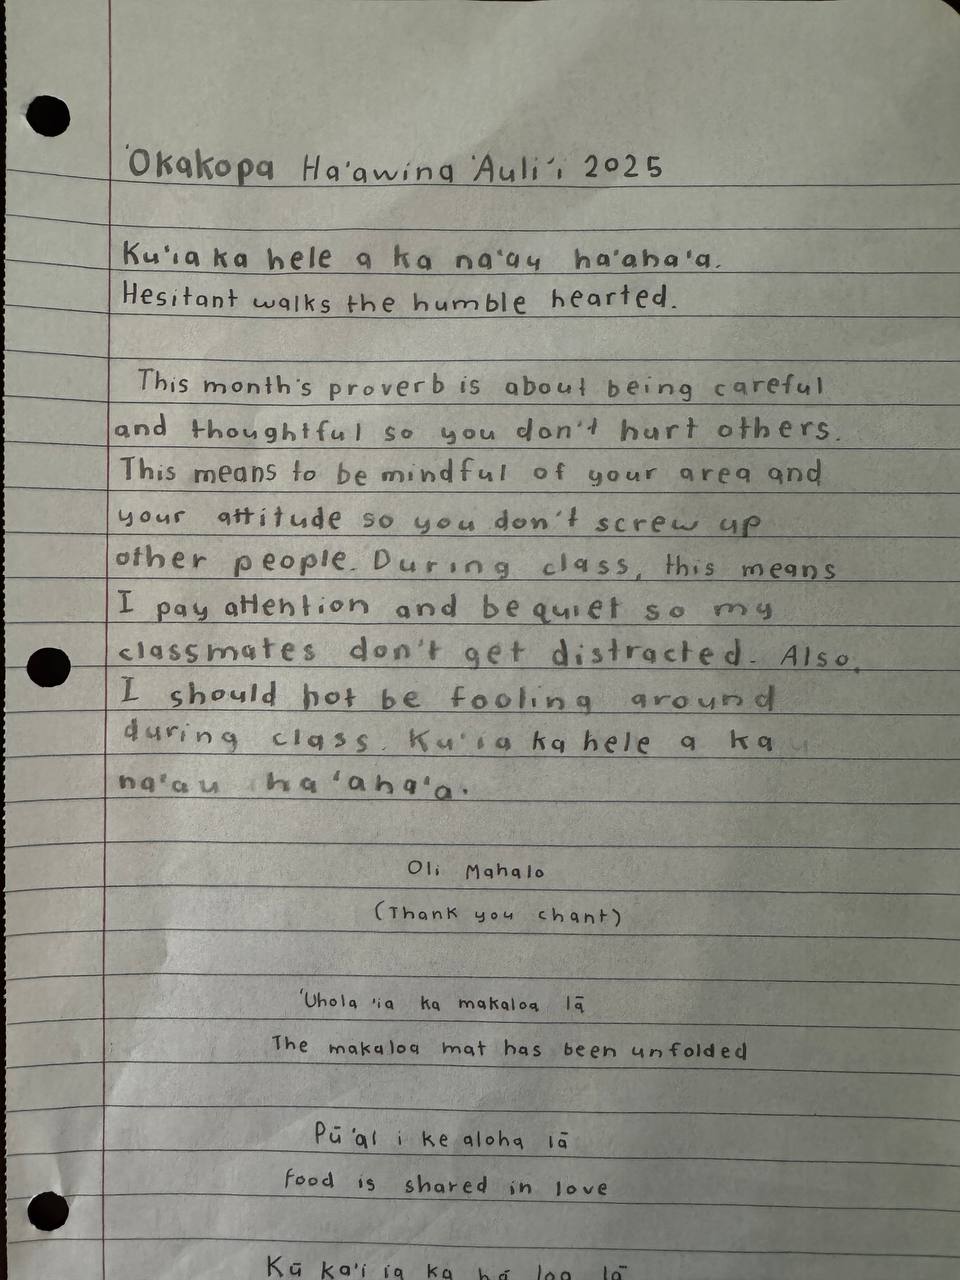 'Okakopa Ha'awina 'Auli'i 2025
Ku'ia ka hele a ka na'au ha'aha'a.
Hesitant walks the humble hearted.
This month's proverb is about being careful
and thoughtful so you don't hurt others.
This means to be mindful of your area and
your attitude so you don't screw up
other people. During class, this means
I pay attention and be quiet so my
classmates don't get distracted. Also,
I should not be fooling around
during class. Ku'ia ka hele a ka
na'au ha'aha'a.
Oli Mahalo
(Thank you chant)
'Uhola 'ia ka makaloa lā
The makaloa mat has been unfolded
Pū'ai i ke aloha lā
Food is shared in love
Kū ka'i ia ka hā loa lā